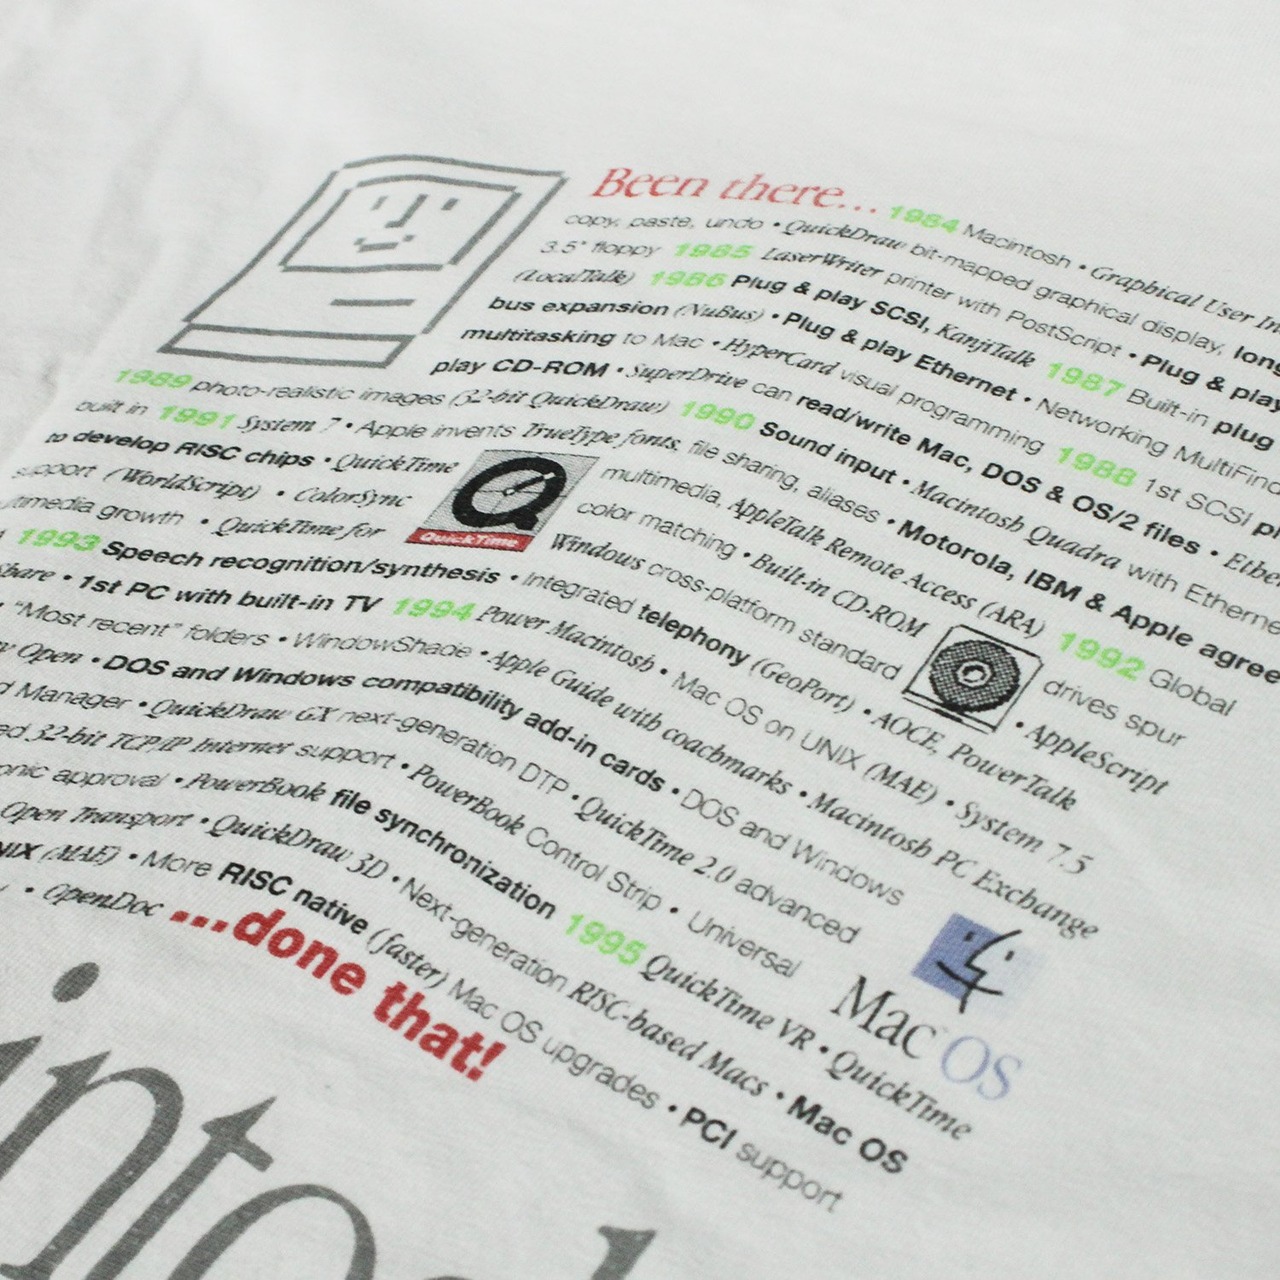 Been there... 1984 Macintosh • Graphical User In
copy, paste, undo • QuickDraw bit-mapped graphical display, long
3.5" floppy 1985 LaserWriter printer with PostScript • Plug & play
(LocalTalk) 1986 Plug & play SCSI, KanjiTalk 1987 Built-in plug
bus expansion (NuBus) • Plug & play Ethernet • Networking MultiFind
multitasking to Mac • HyperCard visual programming 1988 1st SCSI pl
play CD-ROM • SuperDrive can read/write Mac, DOS & OS/2 files • Ether
1989 photo-realistic images (32-bit QuickDraw) 1990 Sound input • Macintosh Quadra with Etherne
built in 1991 System 7 • Apple invents TrueType fonts, file sharing, aliases • Motorola, IBM & Apple agree
to develop RISC chips • QuickTime multimedia, AppleTalk Remote Access (ARA) 1992 Global
support (WorldScript) • ColorSync color matching • Built-in CD-ROM drives spur
timedia growth • QuickTime for Windows cross-platform standard • AppleScript
QuickTime
1993 Speech recognition/synthesis • Integrated telephony (GeoPort) • AOCE, PowerTalk
Share • 1st PC with built-in TV 1994 Power Macintosh • Mac OS on UNIX (MAE) • System 7.5
"Most recent" folders • WindowShade • Apple Guide with coachmarks • Macintosh PC Exchange
Open • DOS and Windows compatibility add-in cards • DOS and Windows
d Manager • QuickDraw GX next-generation DTP • QuickTime 2.0 advanced
ed 32-bit TCP/IP Internet support • PowerBook Control Strip • Universal
onic approval • PowerBook file synchronization 1995 QuickTime VR • QuickTime
Open Transport • QuickDraw 3D • Next-generation RISC-based Macs • Mac OS
NIX (MAE) • More RISC native (faster) Mac OS upgrades • PCI support
• OpenDoc ...done that!
Mac OS
into